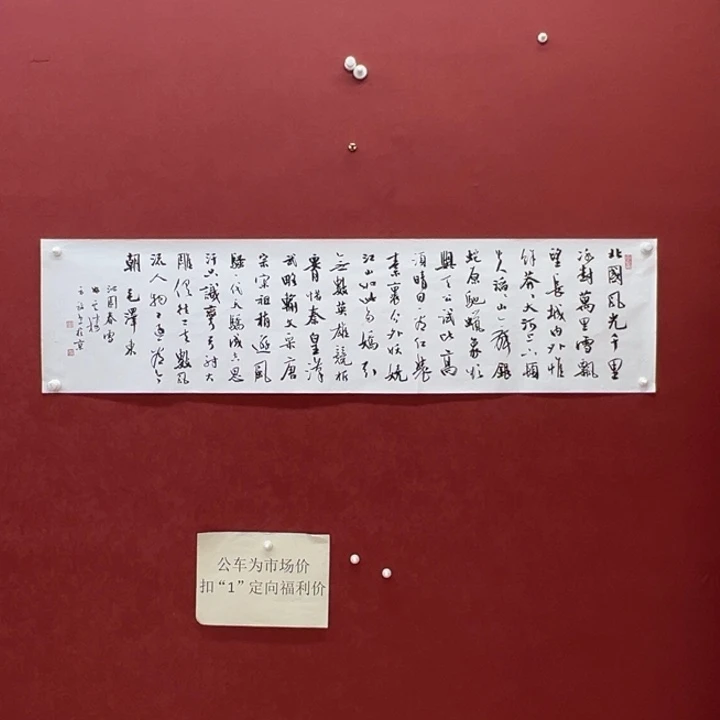 北國風光千里
冰封萬里雪飄
望長城内外惟
餘莽々大河上下頓
失滔々山舞銀
蛇原馳蠟象欲
與天公試比高
須晴日看紅裝
素裹分外妖嬈
江山如此多嬌引
無數英雄競折
腰惜秦皇漢
武略輸文采唐
宗宋祖稍遜風
騷一代天驕成吉思
汗只識彎弓射大
雕俱往矣數風
流人物還看今
朝 毛澤東
沁園春雪
公车为市场价
扣“1”定向福利价